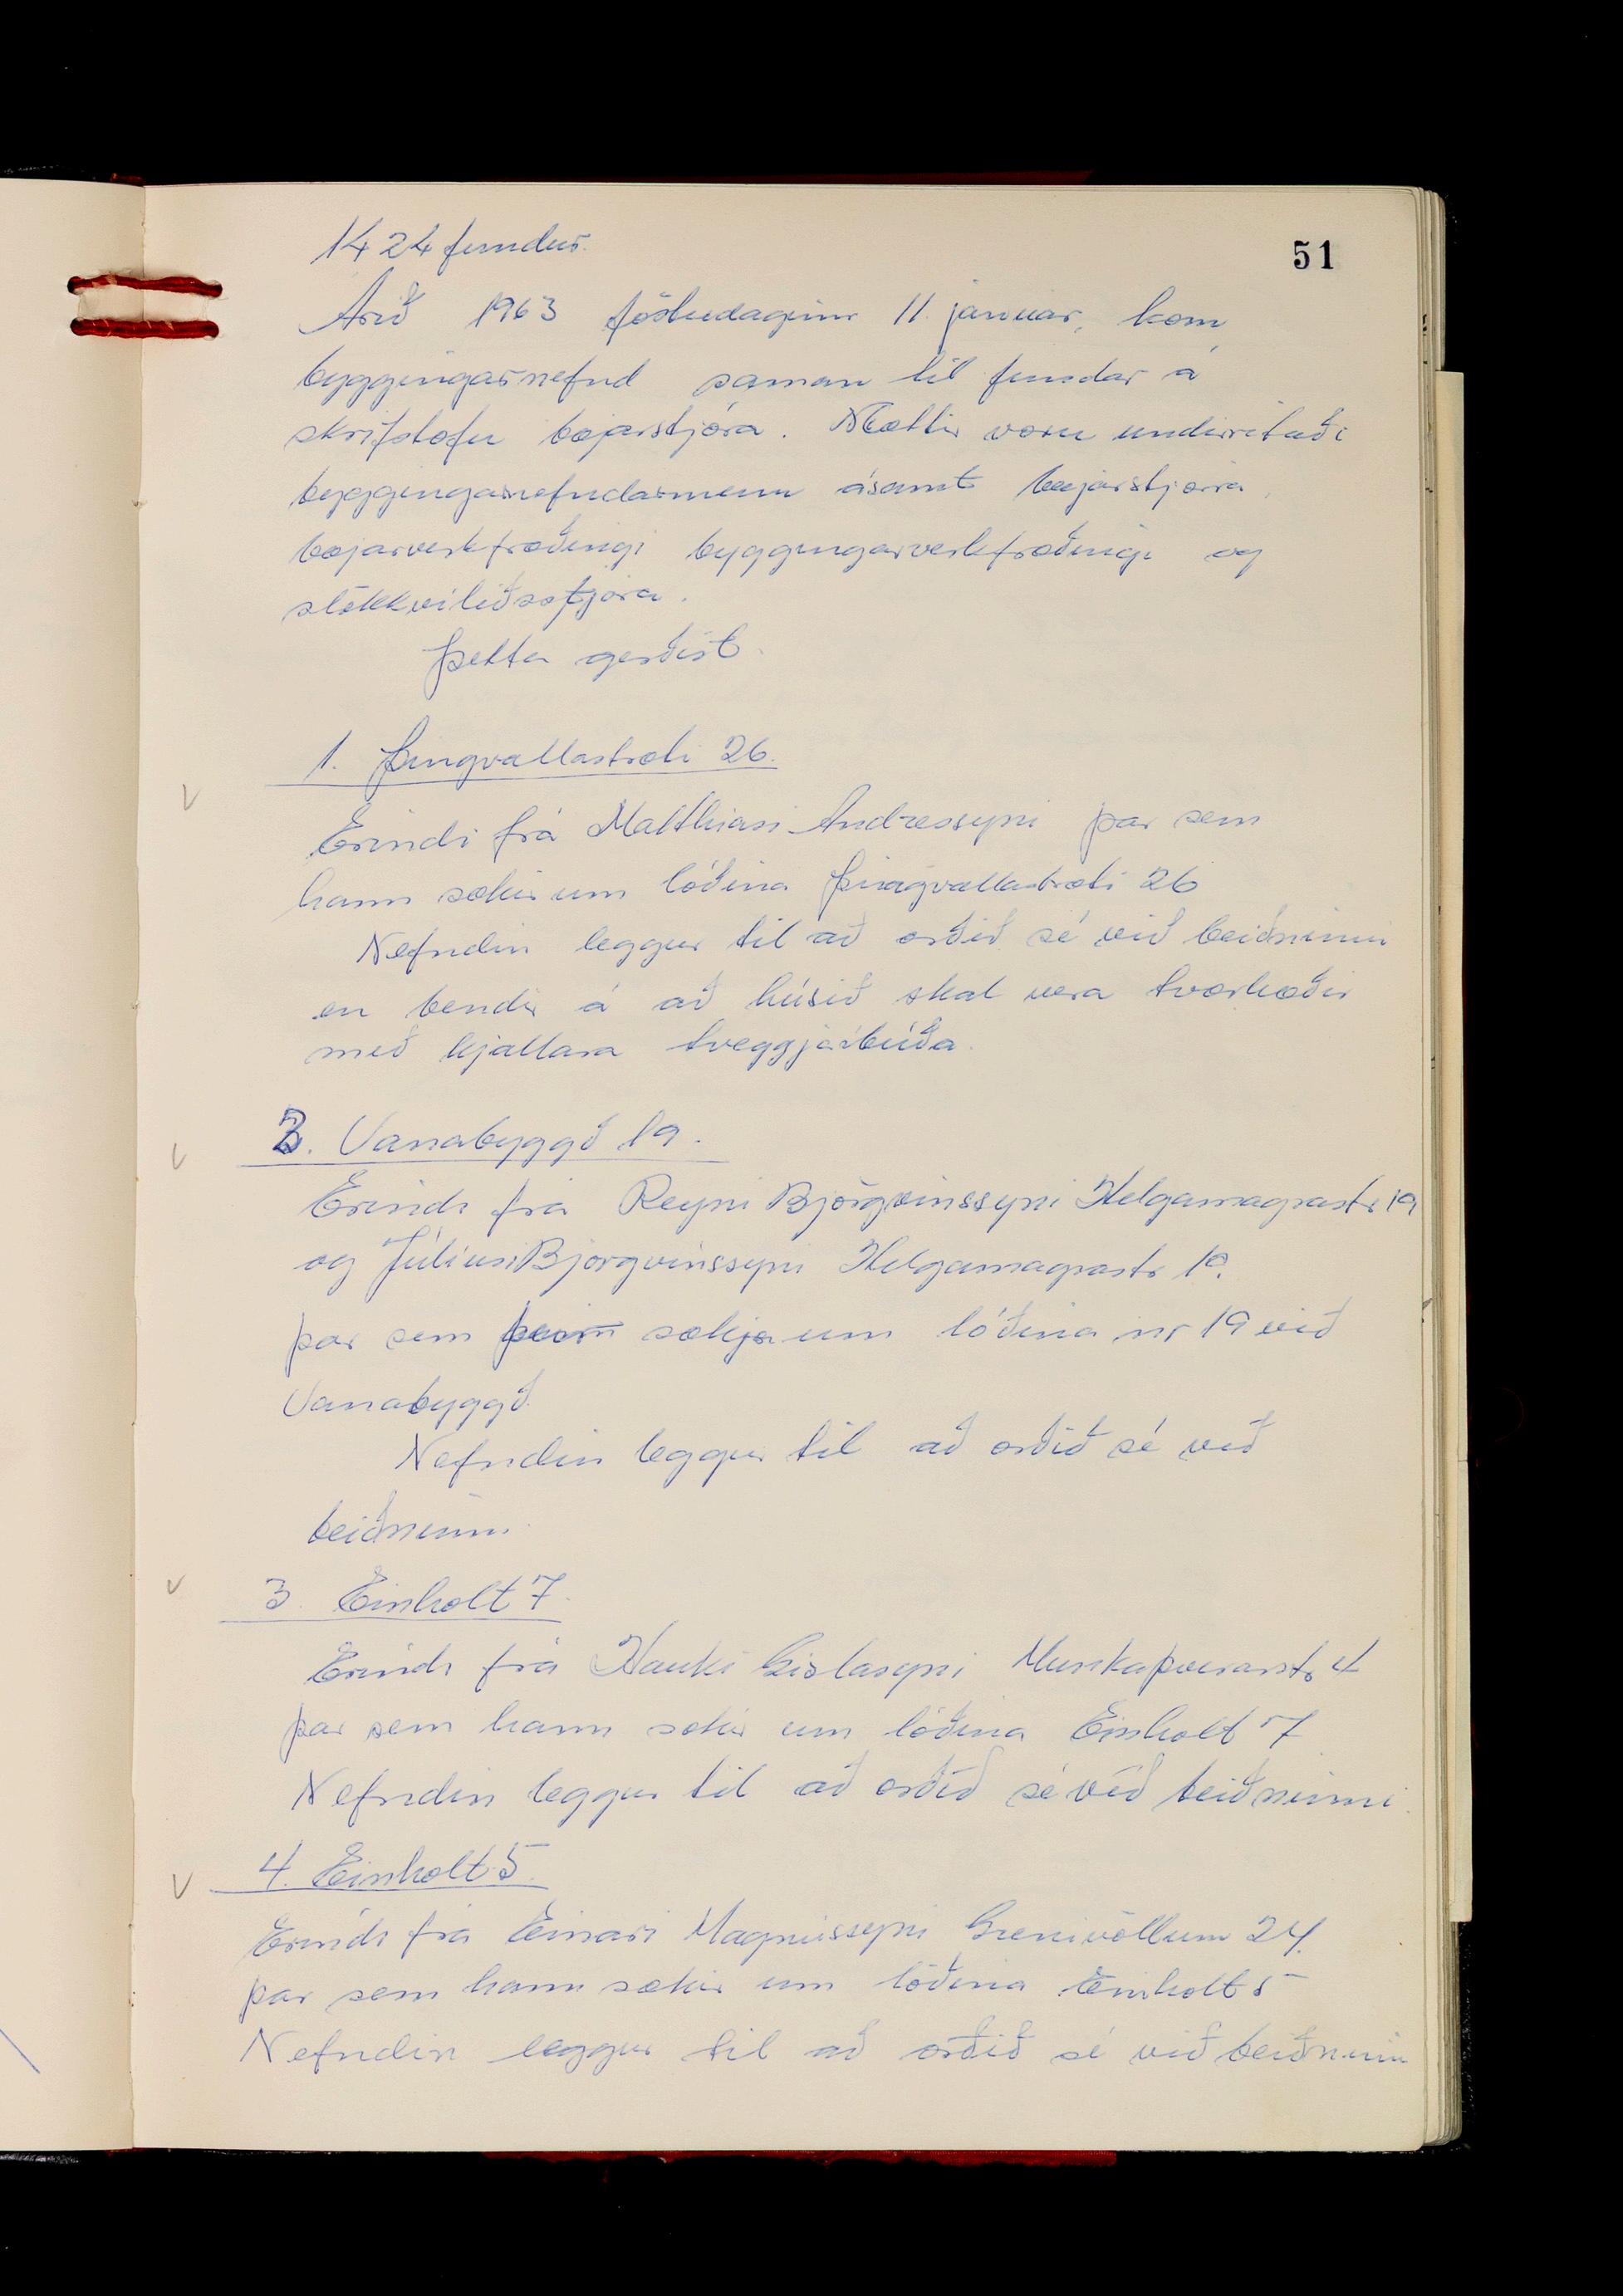 51
1424 fundur.
Árið 1963 föstudaginn 11. janúar, kom
byggingarnefnd saman til fundar á
skrifstofu bæjarstjóra. Mættir voru undirritaði
byggingarnefndarmenn ásamt bæjarstjóra,
bæjarverkfræðingi byggingarverkfræðingi og
slökkviliðsstjóra.
Þetta gerðist.
1. Þingvallastræti 26.
Erindi frá Matthiasi Andressyni þar sem
hann sækir um lóðina Þingvallastræti 26
Nefndin leggur til að orðið sé við beiðninni
en bendir á að húsið skal vera tvær hæðir
með kjallara tveggja íbúða.
2. Vanabyggð 19.
Erindi frá Reyni Björgvinssyni Helgamagrastr 19
og Júlíusi Björgvinssyni Helgamagrastr 19.
þar sem þeir sækja um lóðina nr 19 við
Vanabyggð.
Nefndin leggur til að orðið sé við
beiðninni.
3. Einholt 7.
Erindi frá Hauki Gíslasyni Munkaþverárstr 4
þar sem hann sækir um lóðina Einholt 7
Nefndin leggur til að orðið sé við beiðninni.
4. Einholt 5.
Erindi frá Einari Magnússyni Grenivöllum 24.
þar sem hann sækir um lóðina Einholt 5
Nefndin leggur til að orðið sé við beiðninni